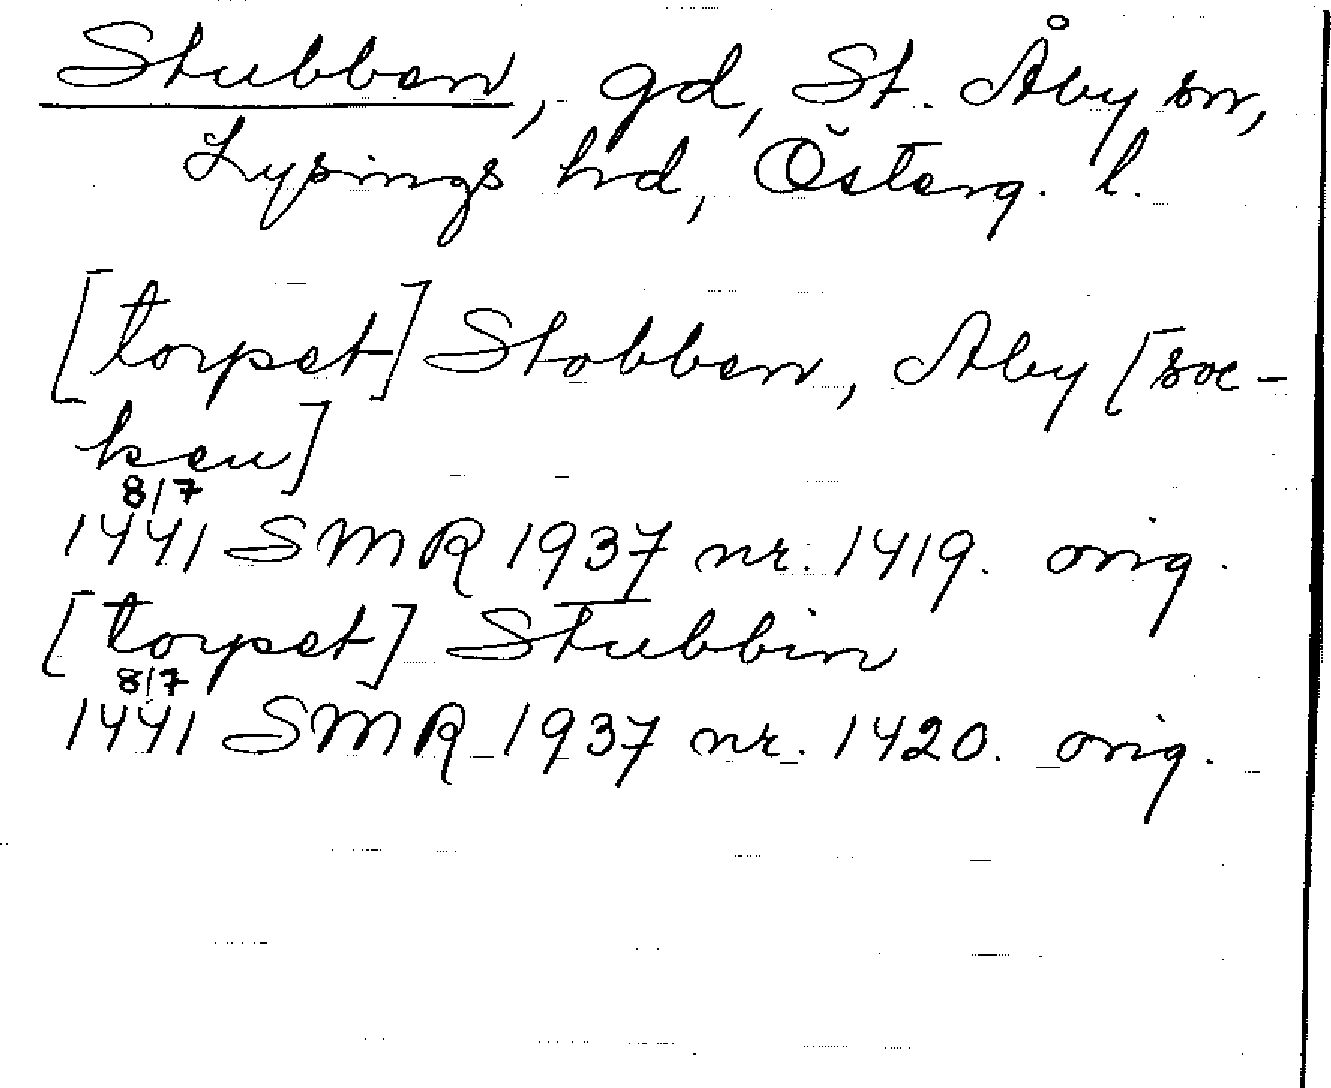 Stubben, gd, St. Åby sn,
Lysings hd, Österg. l.
[torpet] Stobben, Aby [soc-
ken]
8/7
1441 SMR 1937 nr. 1419. orig.
[torpet] Stubbin
8/7
1441 SMR 1937 nr. 1420. orig.